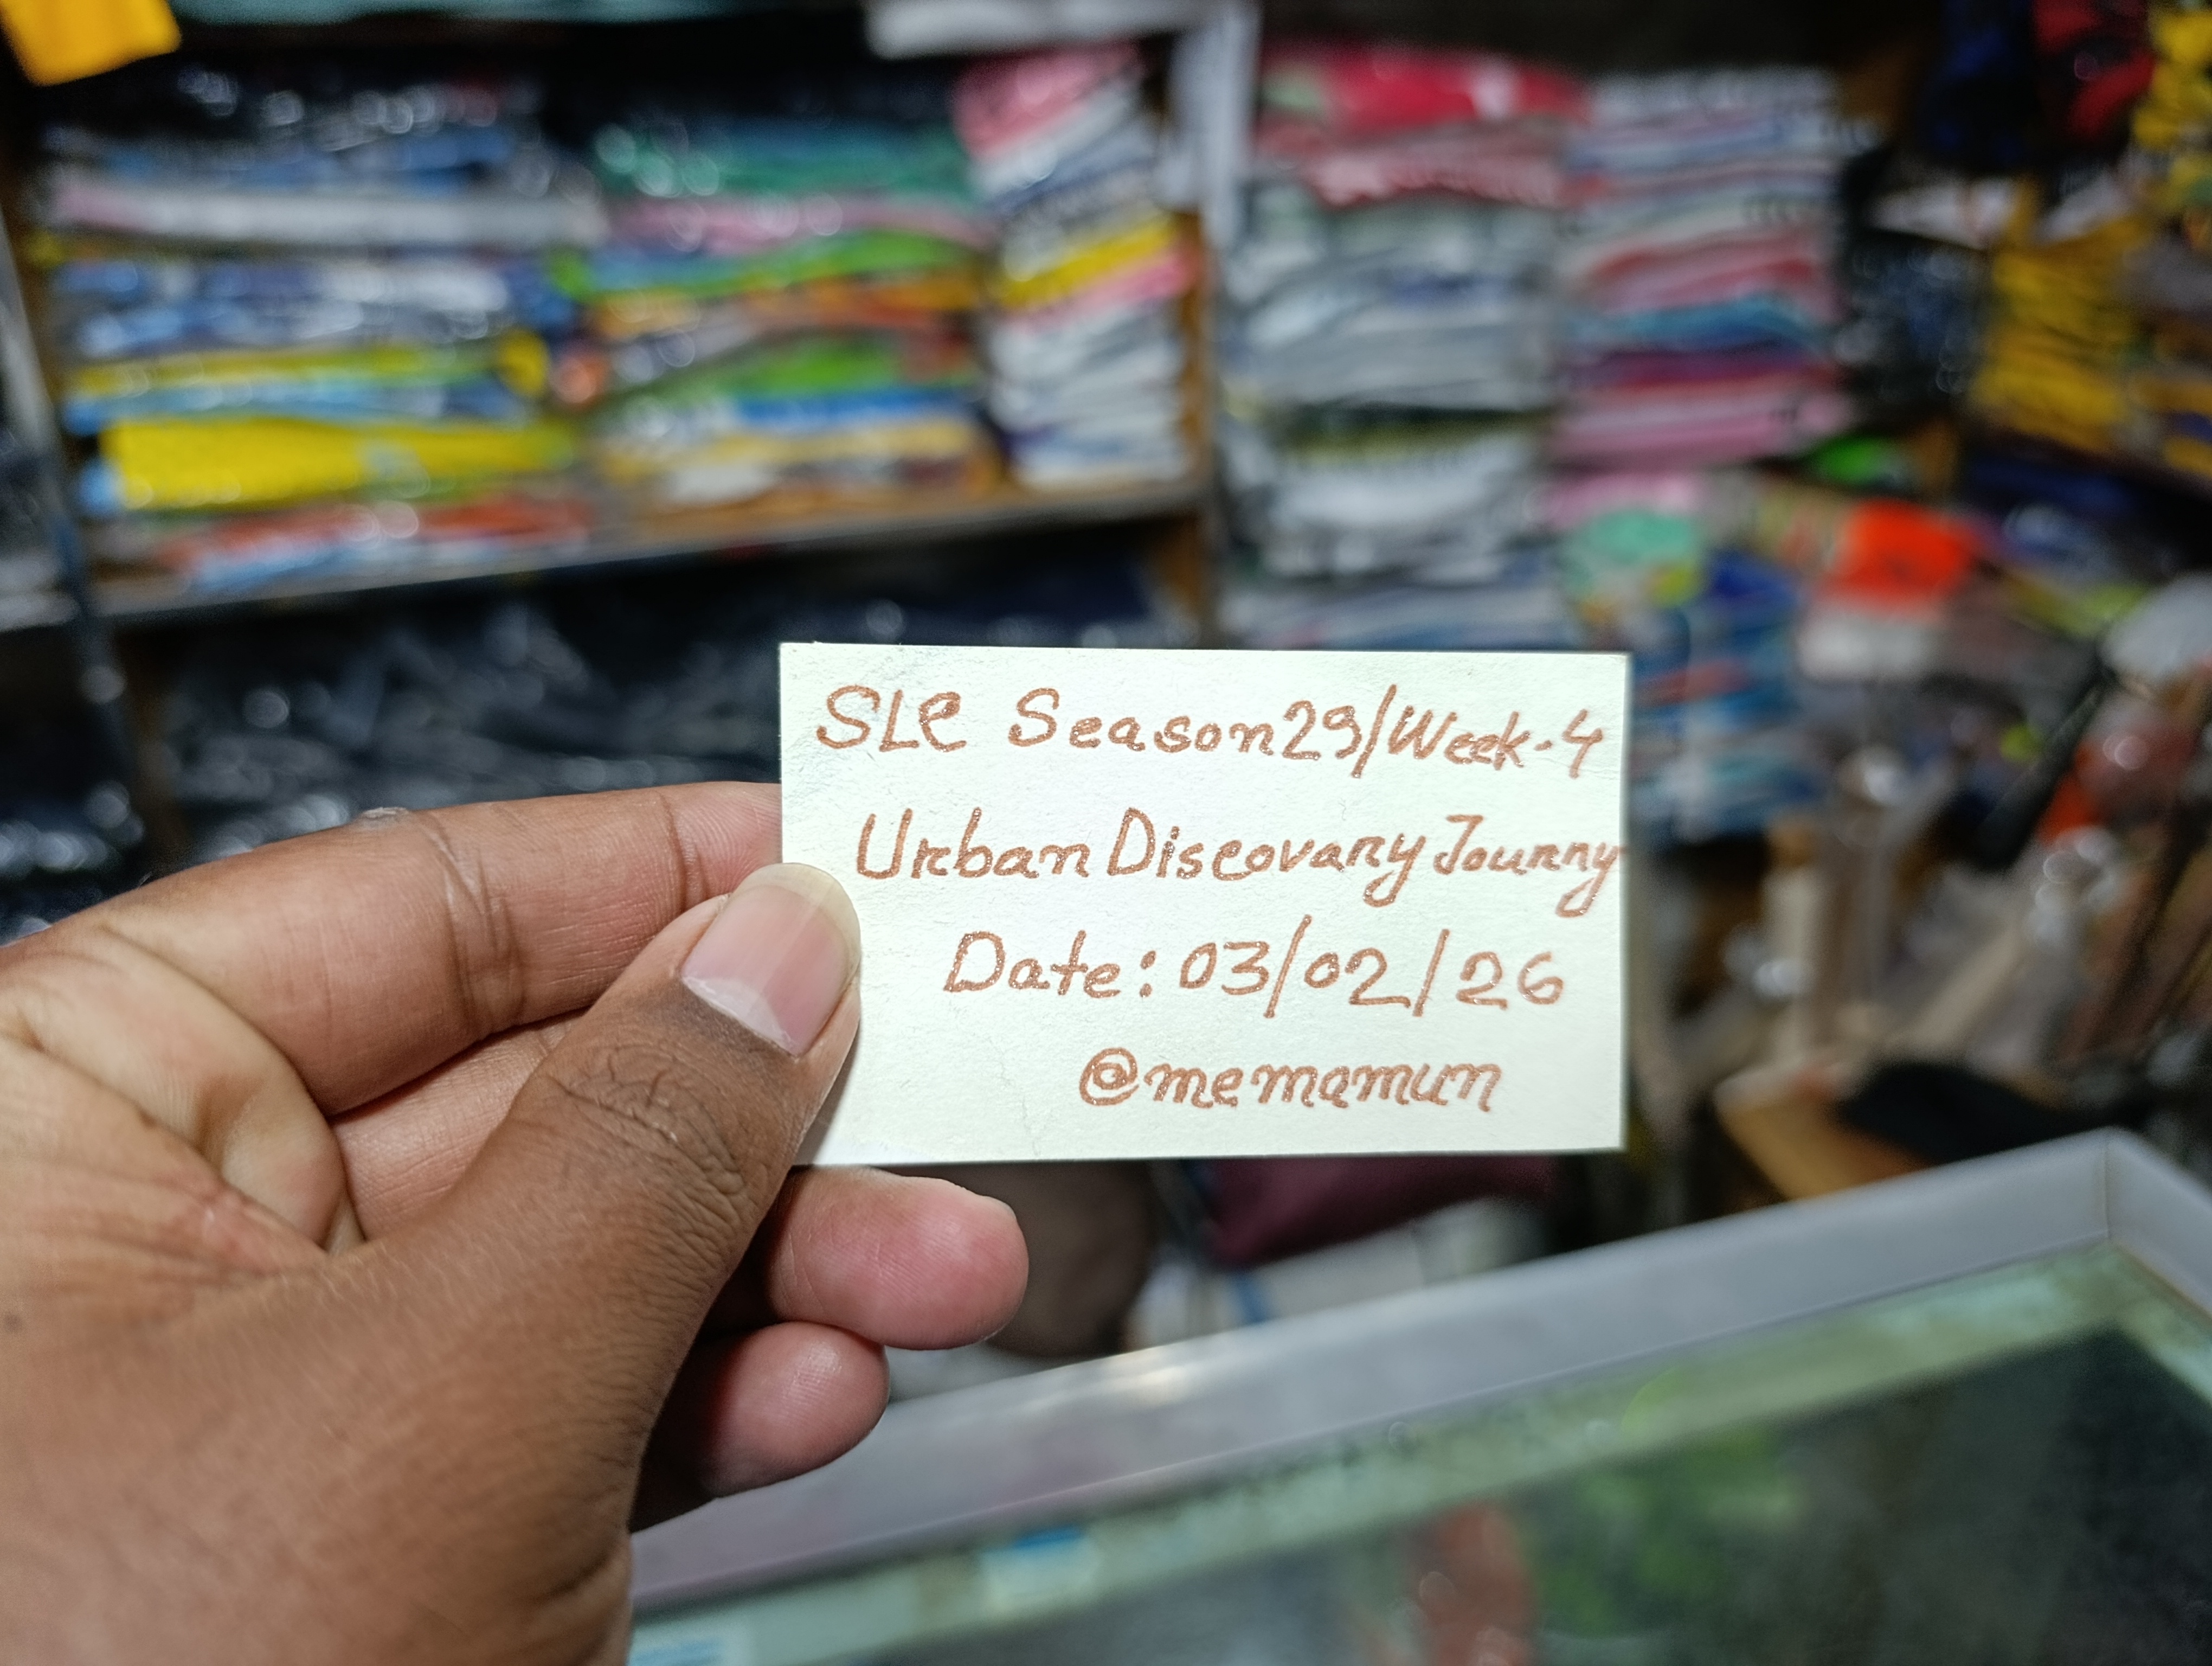 SLC Season29/Week-4
Urban Discovary Jounny
Date: 03/02/26
@memamun